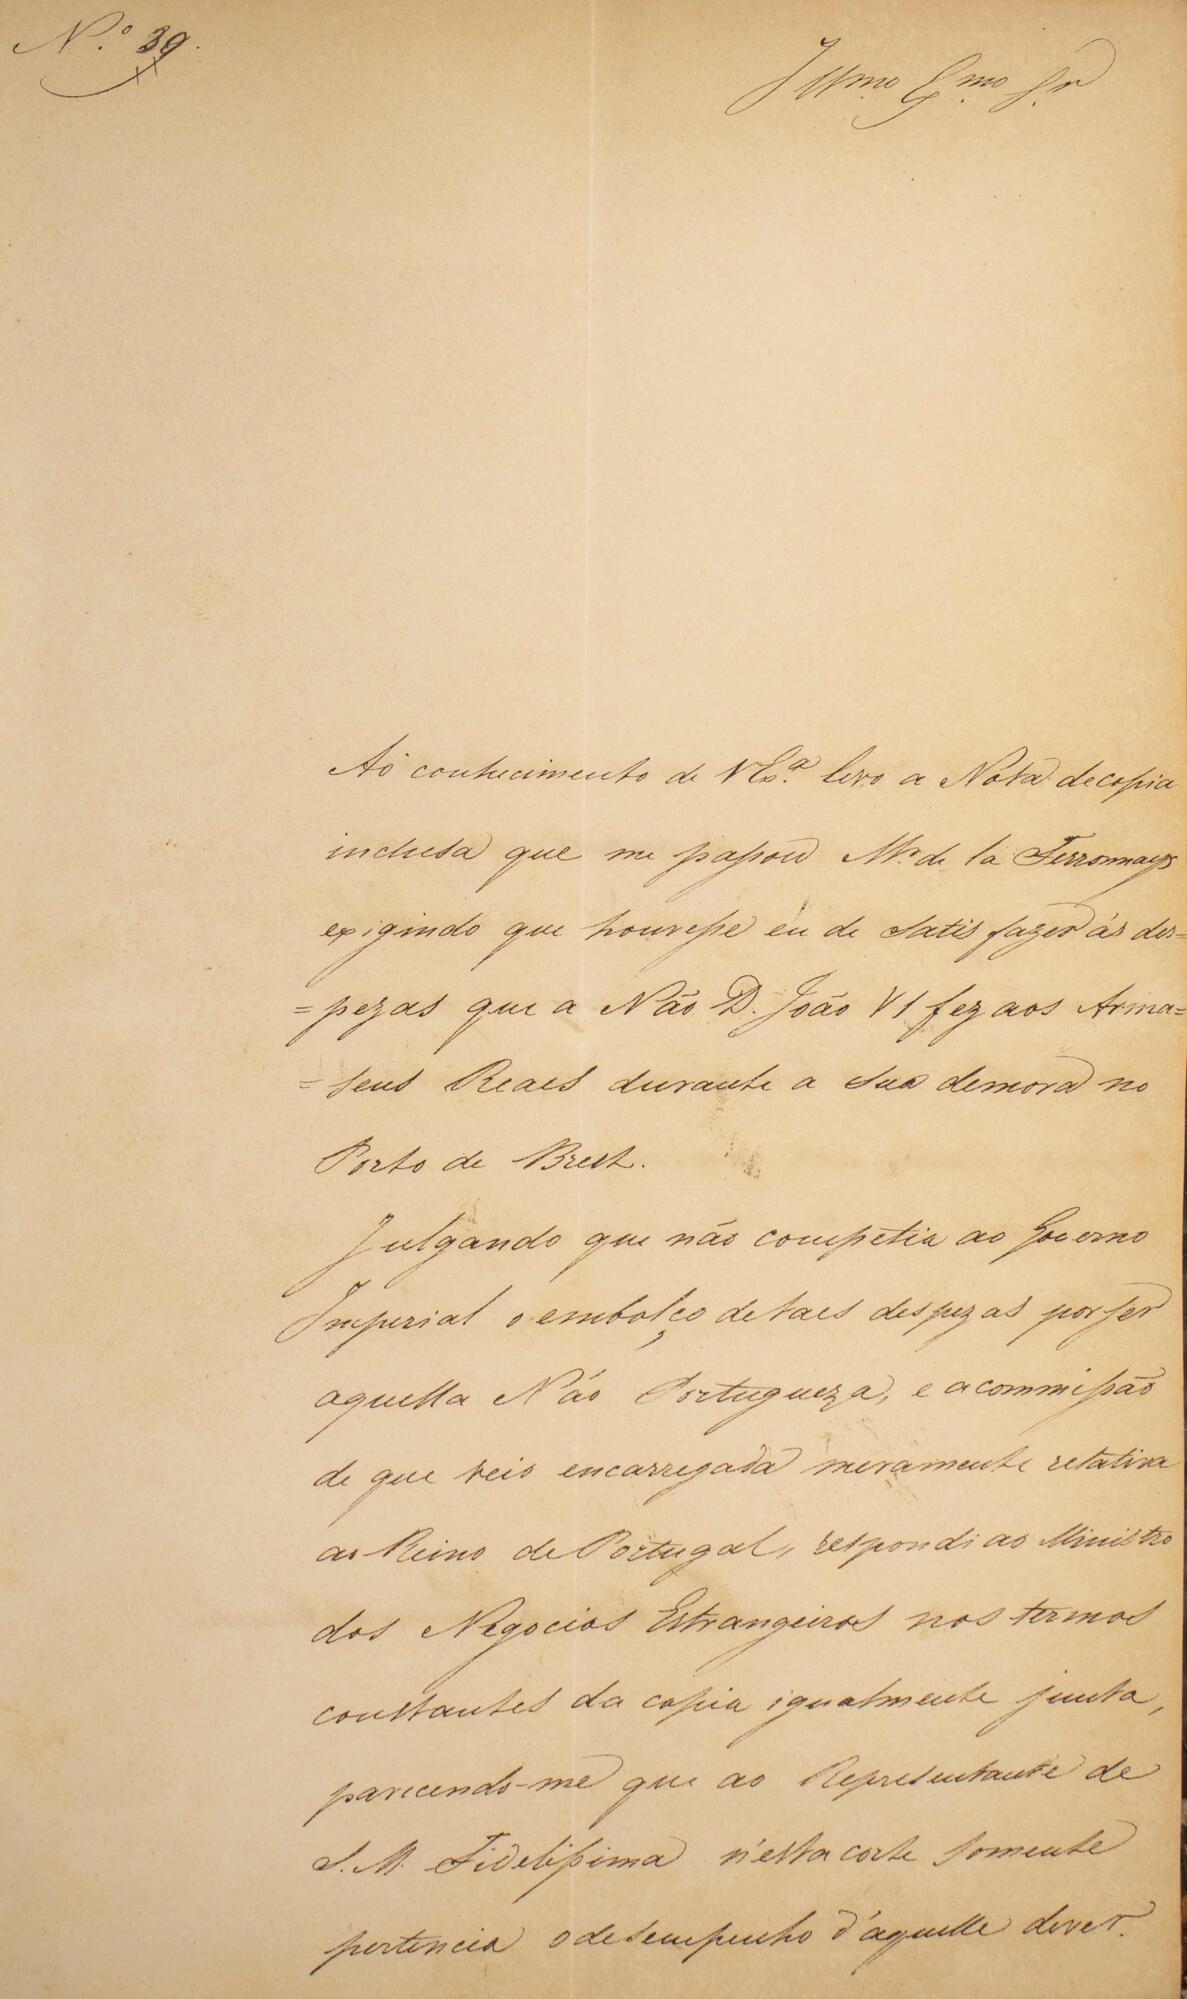 N.º 39.
Illmo Exmo Sr
Ao conhecimento de V Exª. levo a Nota de copia
inclusa que me passou Mr. de la Ferronnays
exigindo que houvesse eu de satisfazer ás des=
=pezas que a Náo D. João VI fez aos Arma=
=sens Reaes durante a sua demora no
Porto de Brest.
Julgando que não competia ao Governo
Imperial o embolço de taes despezas por ser
aquella Náo Portugueza, e a commissão
de que veio encarregada meramente relativa
ao Reino de Portugal, respondi ao Ministro
dos Negocios Estrangeiros nos termos
constantes da copia igualmente junta,
parecendo-me que ao Representante de
S. M. Fidelissima n'esta corte somente
pertencia o desempenho d'aquelle dever.